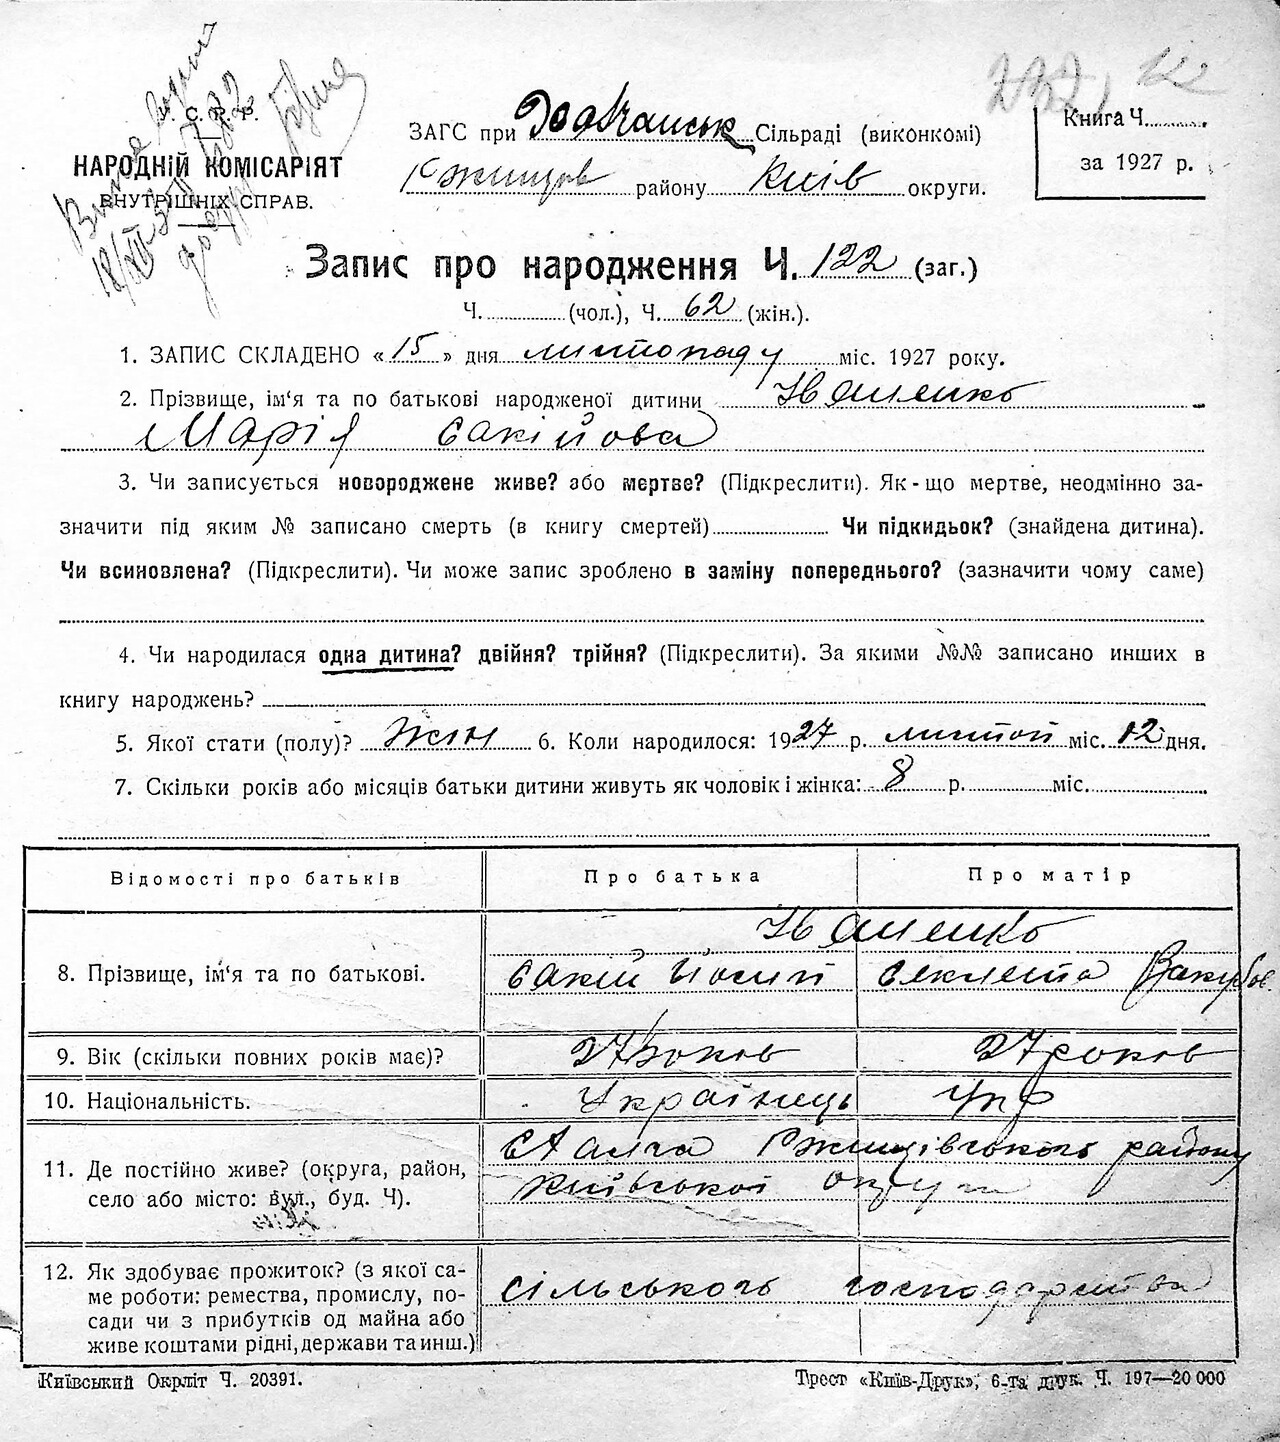 У. С. Р. Р.
НАРОДНІЙ КОМІСАРІЯТ
ВНУТРІШНІХ СПРАВ.
ЗАГС при Сільраді (виконкомі)
району Київ округи.
Книга Ч.
за 1927 р.
Запис про народження Ч. 122 (заг.)
Ч. (чол.), Ч. 62 (жін.).
1. ЗАПИС СКЛАДЕНО « 15 » дня листопаду міс. 1927 року.
2. Прізвище, ім'я та по батькові народженої дитини Іваненко
Марія Єакійова
3. Чи записується новороджене живе? або мертве? (Підкреслити). Як-що мертве, неодмінно за-
значити під яким № записано смерть (в книгу смертей) Чи підкидьок? (знайдена дитина).
Чи всиновлена? (Підкреслити). Чи може запис зроблено в заміну попереднього? (зазначити чому саме)
4. Чи народилася одна дитина? двійня? трійня? (Підкреслити). За якими №№ записано инших в
книгу народжень?
5. Якої стати (полу)? жін 6. Коли народилося: 1927 р. листоп міс. 12 дня.
7. Скільки років або місяців батьки дитини живуть як чоловік і жінка: 8 р. міс.
Відомості про батьків Про батька Про матір
Іваненко
8. Прізвище, ім'я та по батькові. Єакій Йосип
9. Вік (скільки повних років має)? 27 років 27 років
10. Національність. Українець Укр
11. Де постійно живе? (округа, район, Ржищівського району
село або місто: вул., буд. Ч). Київської округи
12. Як здобуває прожиток? (з якої са-
ме роботи: ремества, промислу, по- сільського господарства
сади чи з прибутків од майна або
живе коштами рідні, держави та инш.)
Київський Окрліт Ч. 20391. Трест «Київ-Друк», 6-та друк. Ч. 197—20 000